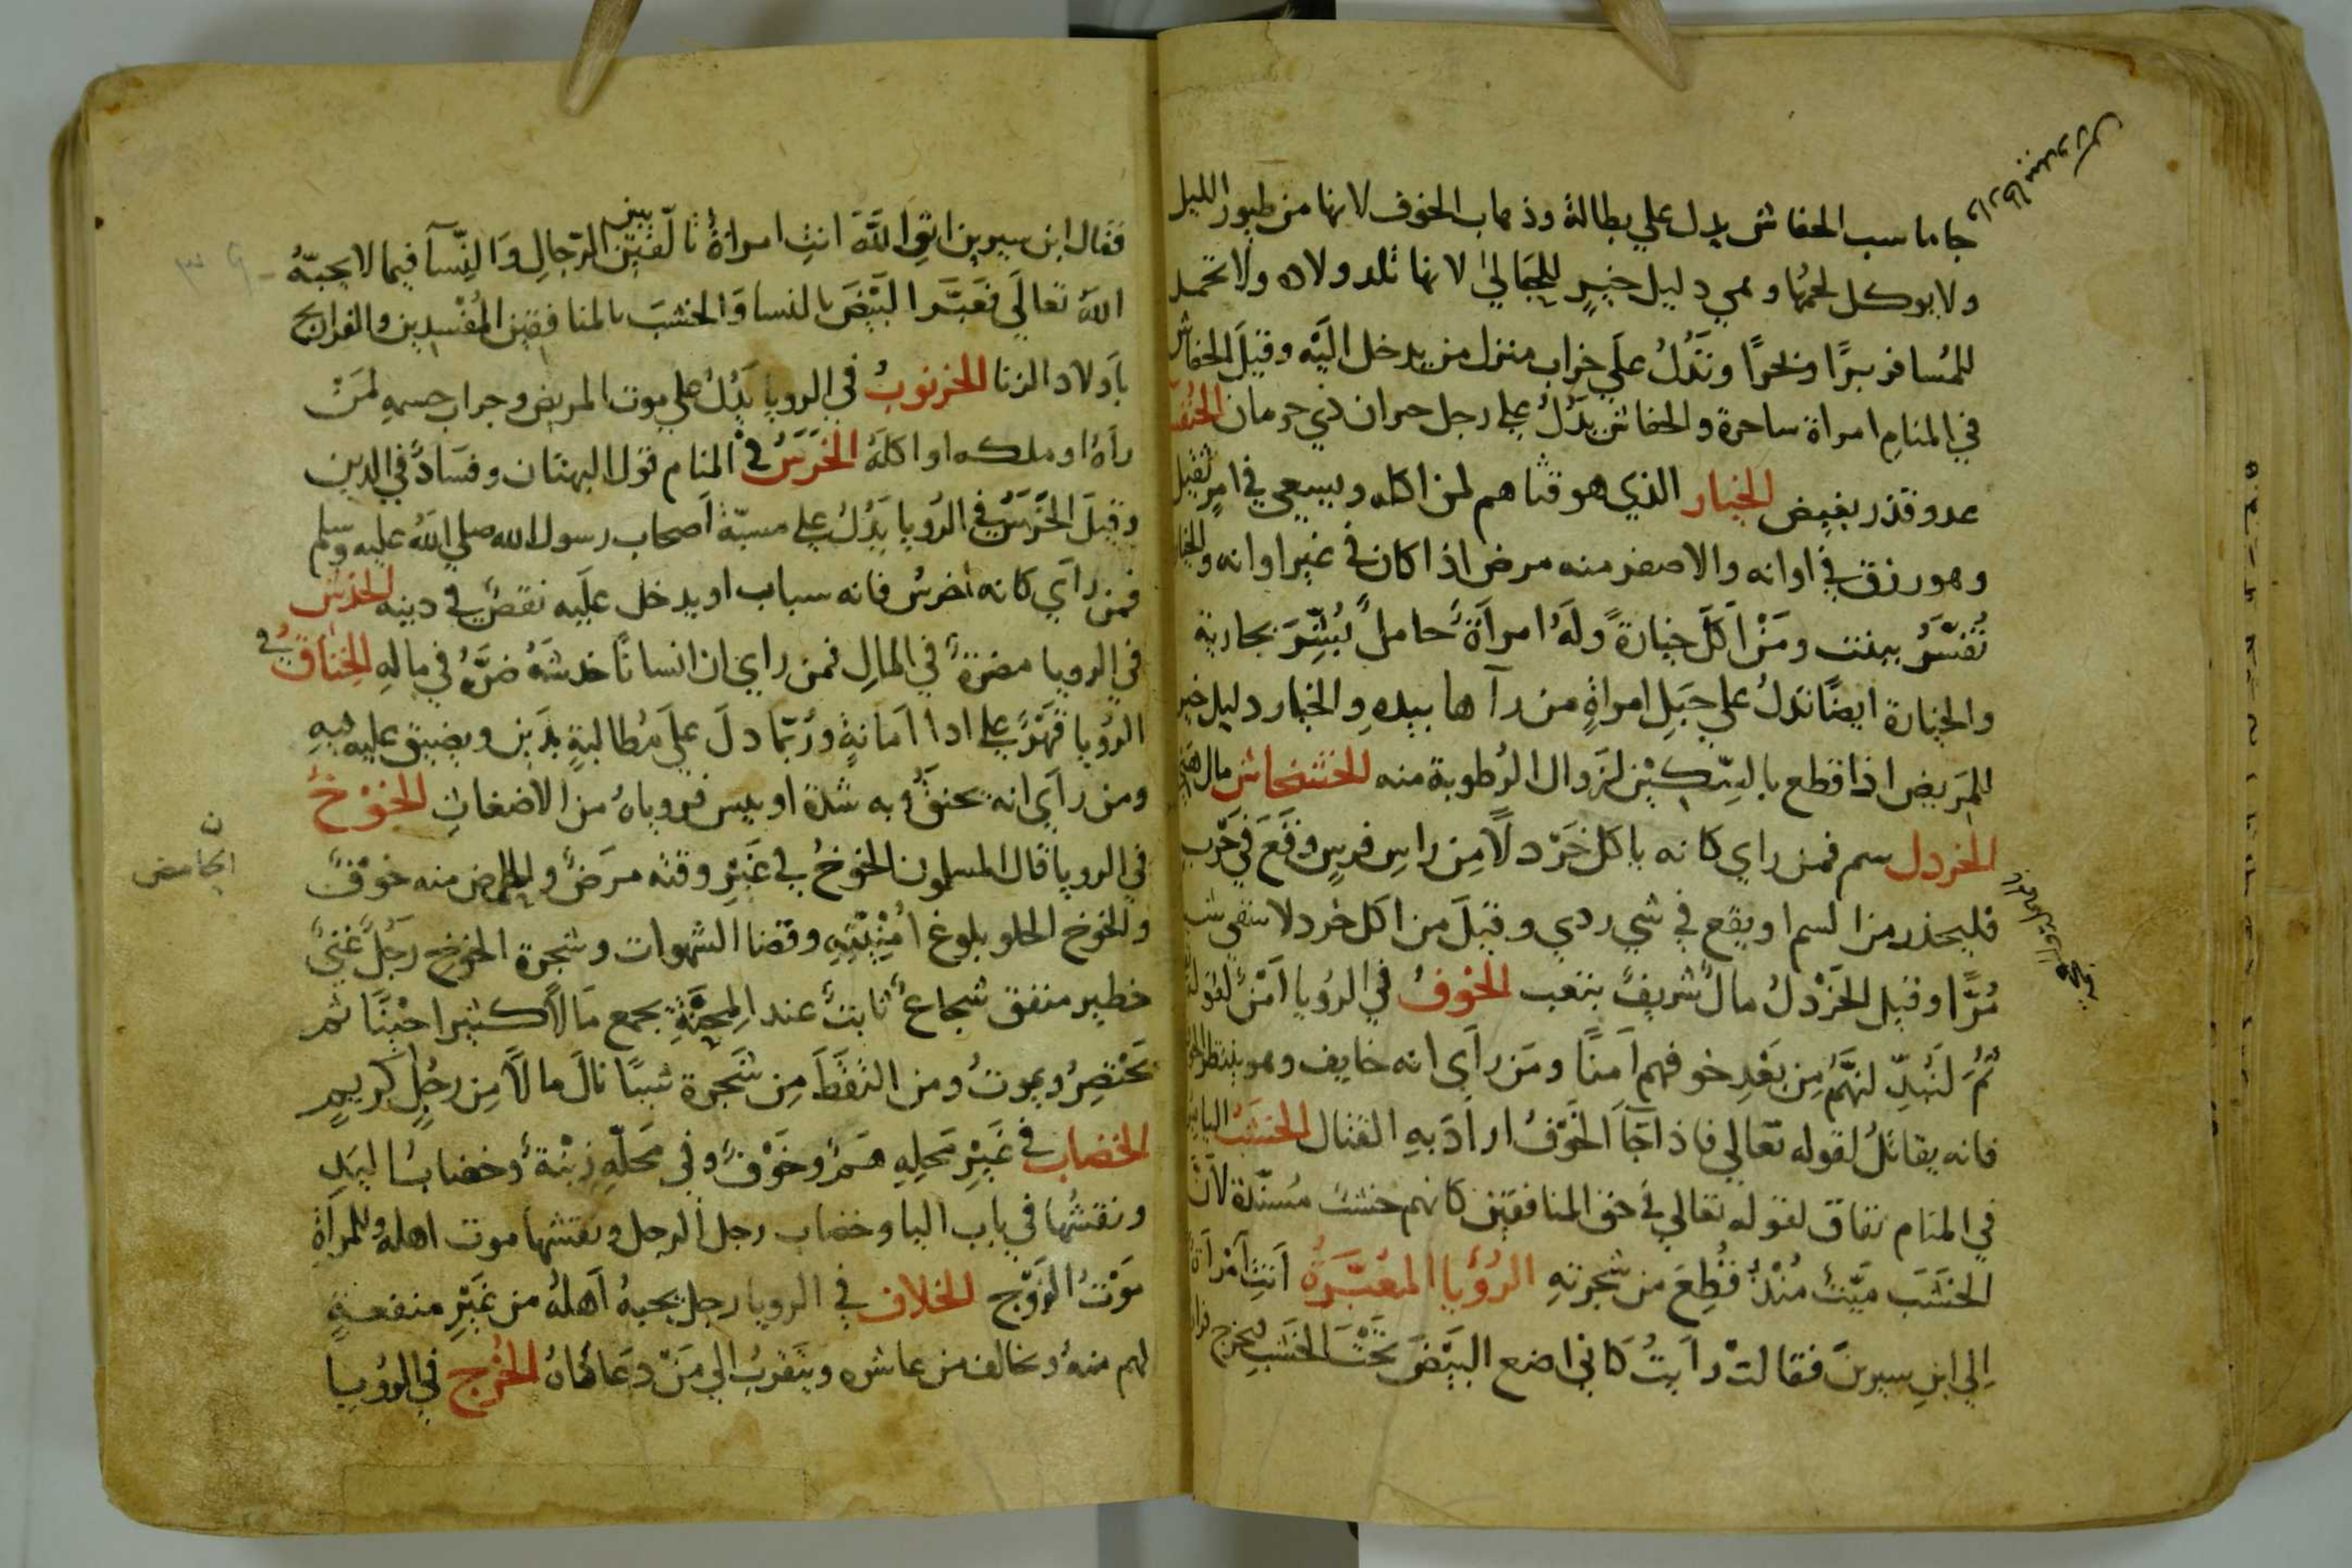 جاماسب الخفاش يدل علي بطالة وذهاب الخوف لانها من طيور الليل
ولا يوكل لحمها وهي دليل خير للحبالي لانها تلد ولاده ولا تحمد
للمُسافر برًّا وبحرًا وتَدُلُ علَي خراب منزل من يدخل اليَه وقيلَ الخفاش
في المنامِ امراة ساحرة والخفاش يدَُلُ علي رجل حيران ذي حرمان
عدو قذر بغيض الخيار الذي هو قثا هم لمن اكله ويسعي في امرٍ ثقيل
وهو رزق في اوانه والاصفر منه مرض اذا كان في غير اوانه والخيار
تُفسَّرُ ببنت ومَنْ اَكَلَ خيارةً ولَهُ امرأَةٌ حاملٌ بُشِّرَ بجارية
والخيارة ايضًا تدلُ علي حَبَلِ امراةٍ من رآها بيدهِ والخيار دليل خير
المَريض اذا قطع بالسِّكيْنِ لزوال الرُطوبة منه الخشخاش مال
الخردل سم فمن راي كانه ياكل خَرْدلًا مِن راسِ فرسٍ وقَعَ في حَرْب
فليحذر من السم او يقع في شي ردي وقيلَ من اكل خردلا سقي
مُرًّا وقيل الخَرْدلُ مالٌ شريفٌ بتعب الخوفُ في الرُويا اَمْنٌ لقوله
ثُمَ لَنُبدِّلنهَّمُ مِن بَعْدِ خوفهم اَمنًا ومَن رأَي انه خايف وهو ينتظر
فانه يقاتلُ لقوله تعَالي فاذا جَآ الخَوْفُ اراَدَ بهِ القتال الخشَبُ اليابس
في المنام نفاق لقوله تعالي في حق المنافقِيْن كانهم خشبٌ مُسَنّدة لاَنّ
الخَشَبَ مَيّتٌ مُنْذُ قُطِعَ من شجرتهِ الرُؤيا المعَبَّرَةُ اَتَتِ اَمْراَةٌ
اِلي ابنِ سيرينَ فقالتْ رأَيتُ كَاني اضع البَيْضَ تَحْتَ الخَشَب فيخرج
فقال ابن سيرين اتقِ اللَّهَ انتِ امراةٌ تالّفين بين الرّجالِ وَالنِّسآ فيما لا يحبهُ
اللهُ تعَالَي فعَبَّر البَيْضَ بالنسا وَالخشبَ بالمنافقين المُفْسدين والفراريج
باَولاد الزنا الخرنوبُ في الرويا يَدُلُ علي موت المريض وخراب جسمهِ لمَنْ
رأَهُ او ملكه او اكلَهُ الخَرَسُ في المنام قول البهتان وفسَادٌ في الدين
وقيلَ الخَرَسُ في الرُويا يَدُلُ علي مسبّة اَصحاب رسول الله صلي اللهُ عليه وسلم
فمن رأَي كانه اخرسُ فانه سباب او يدخل علَيه نقصٌ في دينه الخدش
في الرويا مضرةٌ في المالِ فمن راي ان انسانًا خدشَهُ ضرَّهُ في مالِهِ الخِنَاقُ في
الرُويا قَهْرٌ علي اداَ اَمَانةٍ ورُبّما دلَ علَي مُطالبةٍ بدَيْنٍ ويضيق عليه فيهِ
ومن رأَي انه يخنق وبه شدة او يبس فروياهُ من الاضغاثِ الخَوْخُ
في الرويا قال المسلمون الخَوْخُ في غَيْرِ وقته مرَضٌ والحامض منه خَوْفٌ
والخوخ الحلو بلوغ اُمْنيتهِ وقضا الشهوات وشجرة الخوخ رَجُلٌ غنيٌ
خطير منفق شجاعٌ ثابتٌ عند المِحنَةِ يجمع مَالًا كثيرا حَيْنًا ثم
يَحْتضِرُ ويموتُ ومن التقَطَ مِن شَجرة شيئًا نالَ مالًا مِن رجُلٍ كريمٍ
الخضاب في غَيْرِ محَلِهِ هَمٌ وخَوْفٌ وفي محَلّهِ زيْنةٌ وخضابُ اليَدِ
ونقشُها في باب اليا وخضاب رجل الرجل ونقشها موت اهله وللمرأَة
مَوْتُ الزَوْج الخلاف في الرويا رجل يحبهُ اَهلهُ من غَيْرِ منفعةٍ
لهم منهُ ويخالف من عاشره ويتَقربُ الي مَنْ دعَاهُ الخُرْج في الرؤيا
ن
الحامض